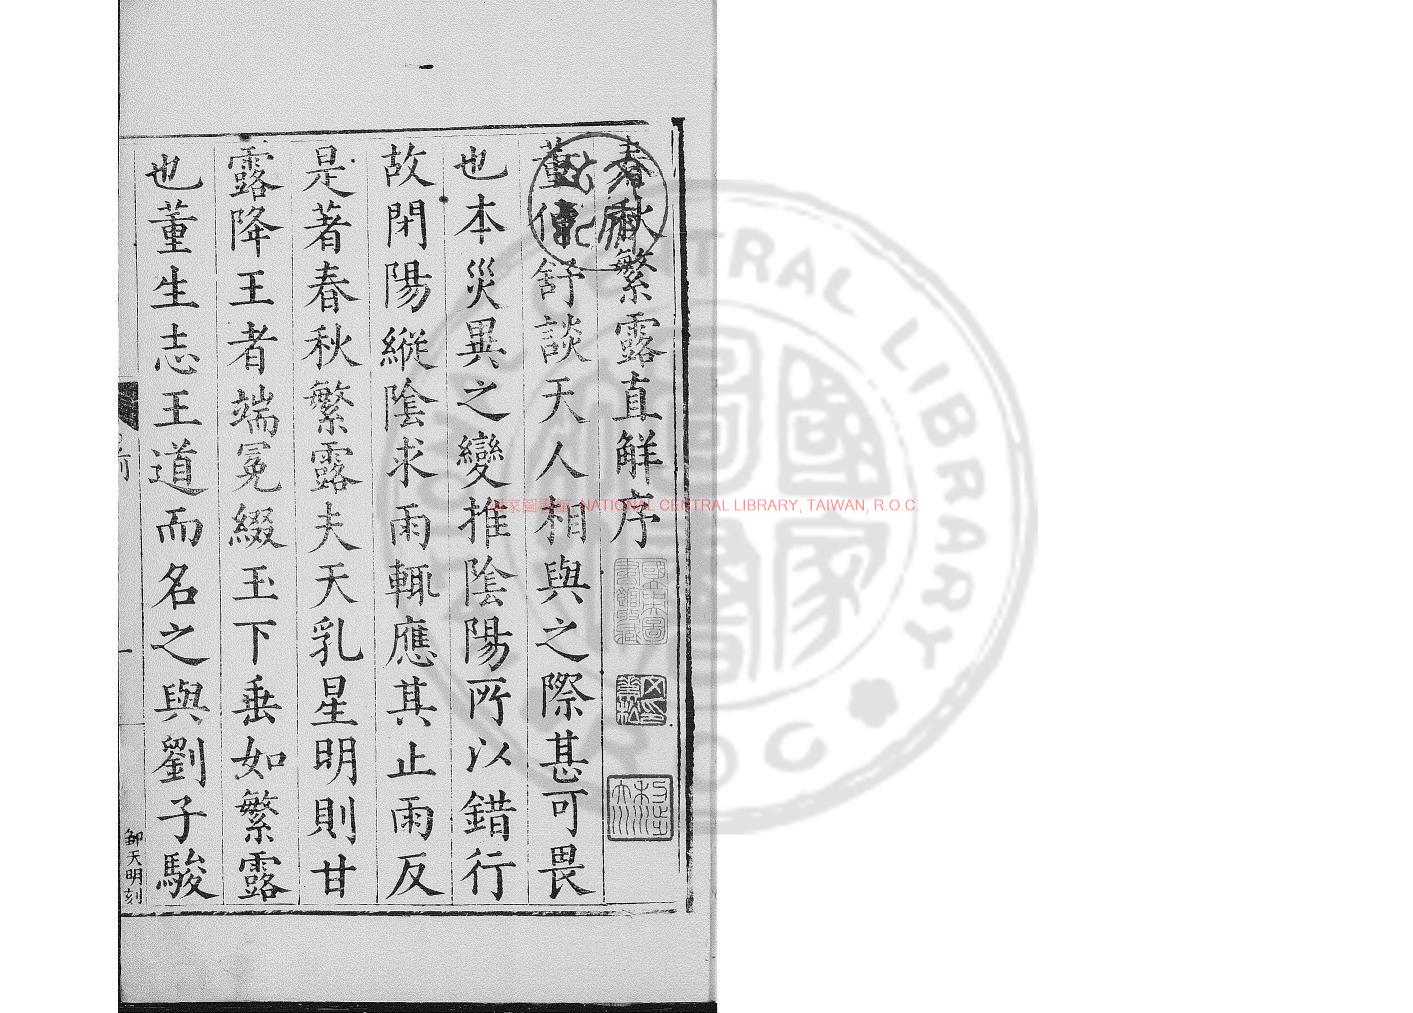 春秋繁露直解序
董仲舒談天人相與之際甚可畏
也本災異之變推陰陽所以錯行
故閉陽縱陰求雨輒應其止雨反
是著春秋繁露夫天乳星明則甘
露降王者端冕綴玉下垂如繁露
也董生志王道而名之與劉子駿
天明刻
NATIONAL CENTRAL LIBRARY, TAIWAN, R.O.C.